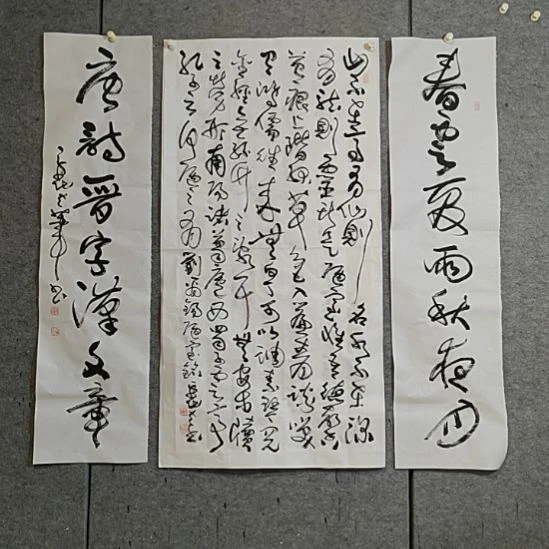 春雲夏雨秋夜月
山不在高有仙則名水不在深
有龍則靈斯是陋室惟吾德馨
苔痕上階綠草色入簾青談笑
有鴻儒往來無白丁可以調素琴閱
金經無絲竹之亂耳無案牘
之勞形南陽諸葛廬西蜀子雲亭
孔子云何陋之有劉禹錫陋室銘
唐詩晉字漢文章